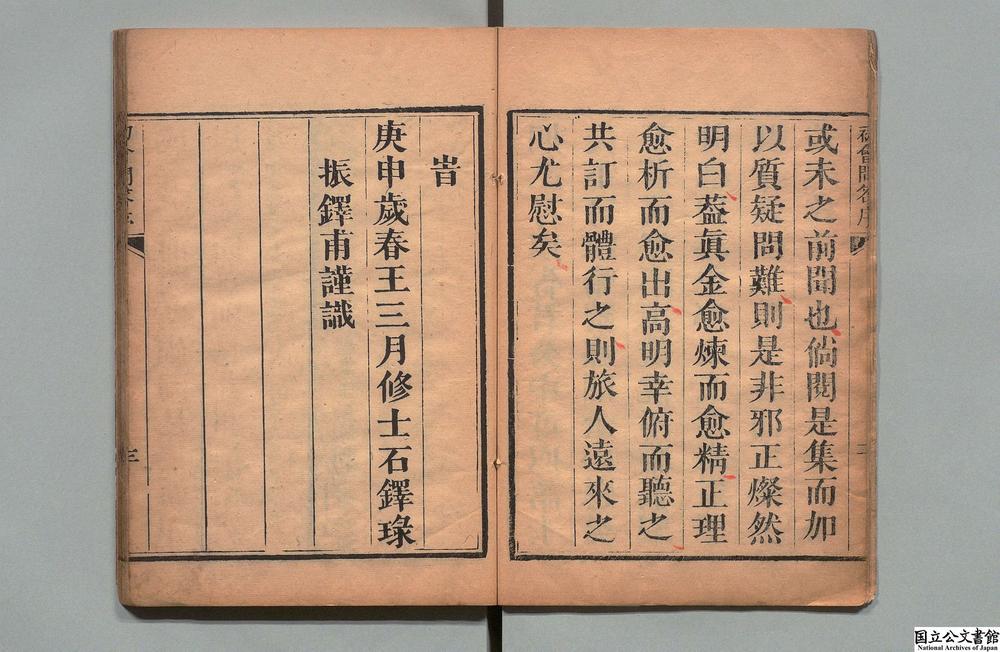 初會問答序
或未之前聞也倘閱是集而加
以質疑問難則是非邪正燦然
明白葢眞金愈煉而愈精正理
愈析而愈出高明幸俯而聽之
共訂而體行之則旅人遠來之
心尤慰矣
旹
庚申歲春王三月修士石鐸琭
振鐸甫謹識
国立公文書館
National Archives of Japan